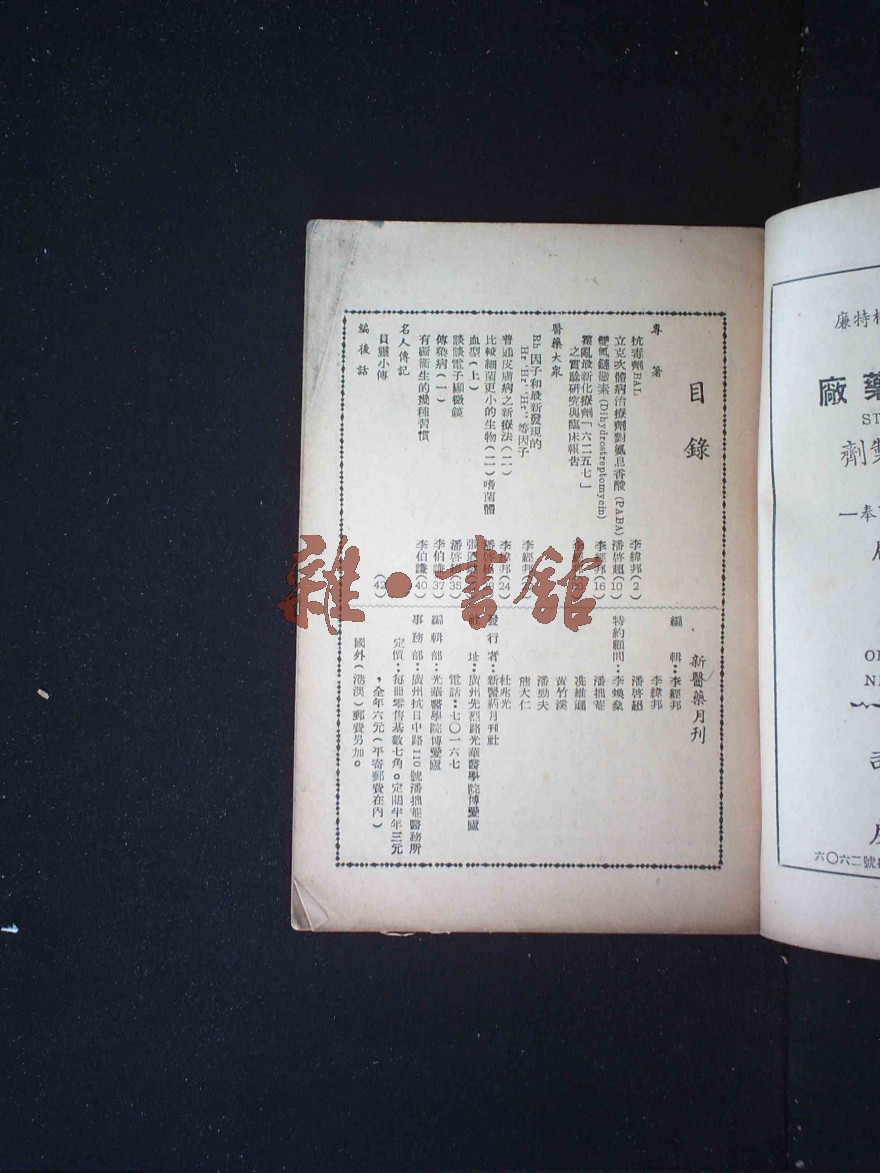 目錄
專著
抗毒劑BAL 李緯邦(2)
立克次體病治療劑對氨息香酸(PABA) 潘啓超(10)
雙氫鏈黴素(Dihydrostreptomycin) 李經邦(16)
霍亂最新化療劑「六二五七」
之實驗研究與臨床報告
醫藥大衆
Rh因子和最新發現的
Hr'Hr''Hr'''等因子 李經邦
普通皮膚病之新療法(二) 李緯邦(24)
比較細菌更小的生物(二)嗜菌體 潘啓超
血型(上)
談談電子顯微鏡 潘啓超(35)
傳染病(一) 李伯謙(37)
有礙衞生的幾種習慣 李伯謙(40)
名人傳記
貝靈小傳 (42)
編後話
新醫藥月刊
編輯:李經邦
李緯邦
潘啓超
特約顧問:李煥燊
潘拙菴
冼維遜
黃竹溪
潘勁夫
熊大仁
杜兆光
發行者:新醫葯月刊社
社址:廣州先烈路光華醫學院博愛廬
電話:七〇一六七
編輯部:光華醫學院博愛廬
事務部:廣州抗日中路110號潘拙菴醫務所
定價:每冊零售基數七角。定閱半年三元
,全年六元(平寄郵費在內)
國外(港澳)郵費另加。
特廉
藥廠
ST
製劑
奉一
六〇六二號
雜·書館